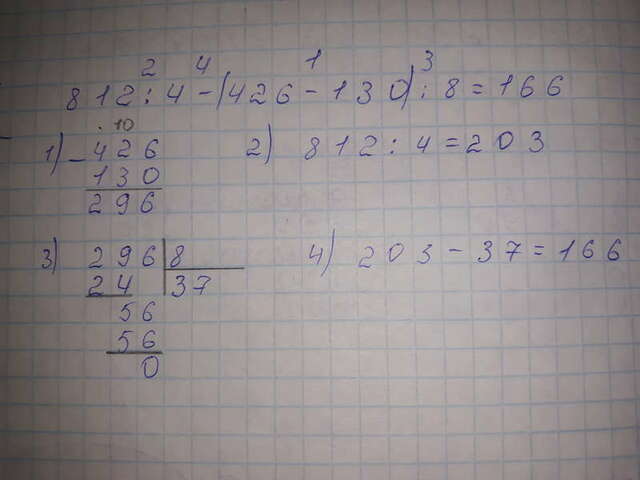 2 4 1 3
812:4-(426-130):8=166
1) . 10
-426
130
296
2) 812:4=203
3) 296|8
24 37
56
56
0
4) 203-37=166